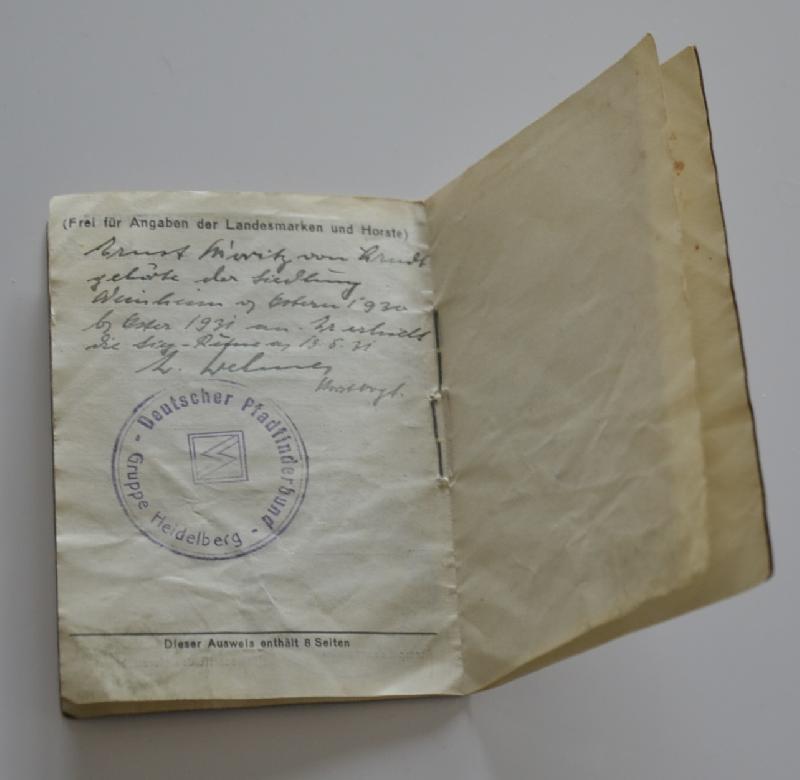 (Frei für Angaben der Landesmarken und Horste)
Ernst Moritz von Arndt
gehörte der Siedlung
Weinheim v. Ostern 1930
b. Oster 1931 an. Er erhielt
die Sieg-Rune am 13.5.31
Horstvogt.
- Deutscher Pfadfinderbund -
Gruppe Heidelberg
Dieser Ausweis enthält 8 Seiten